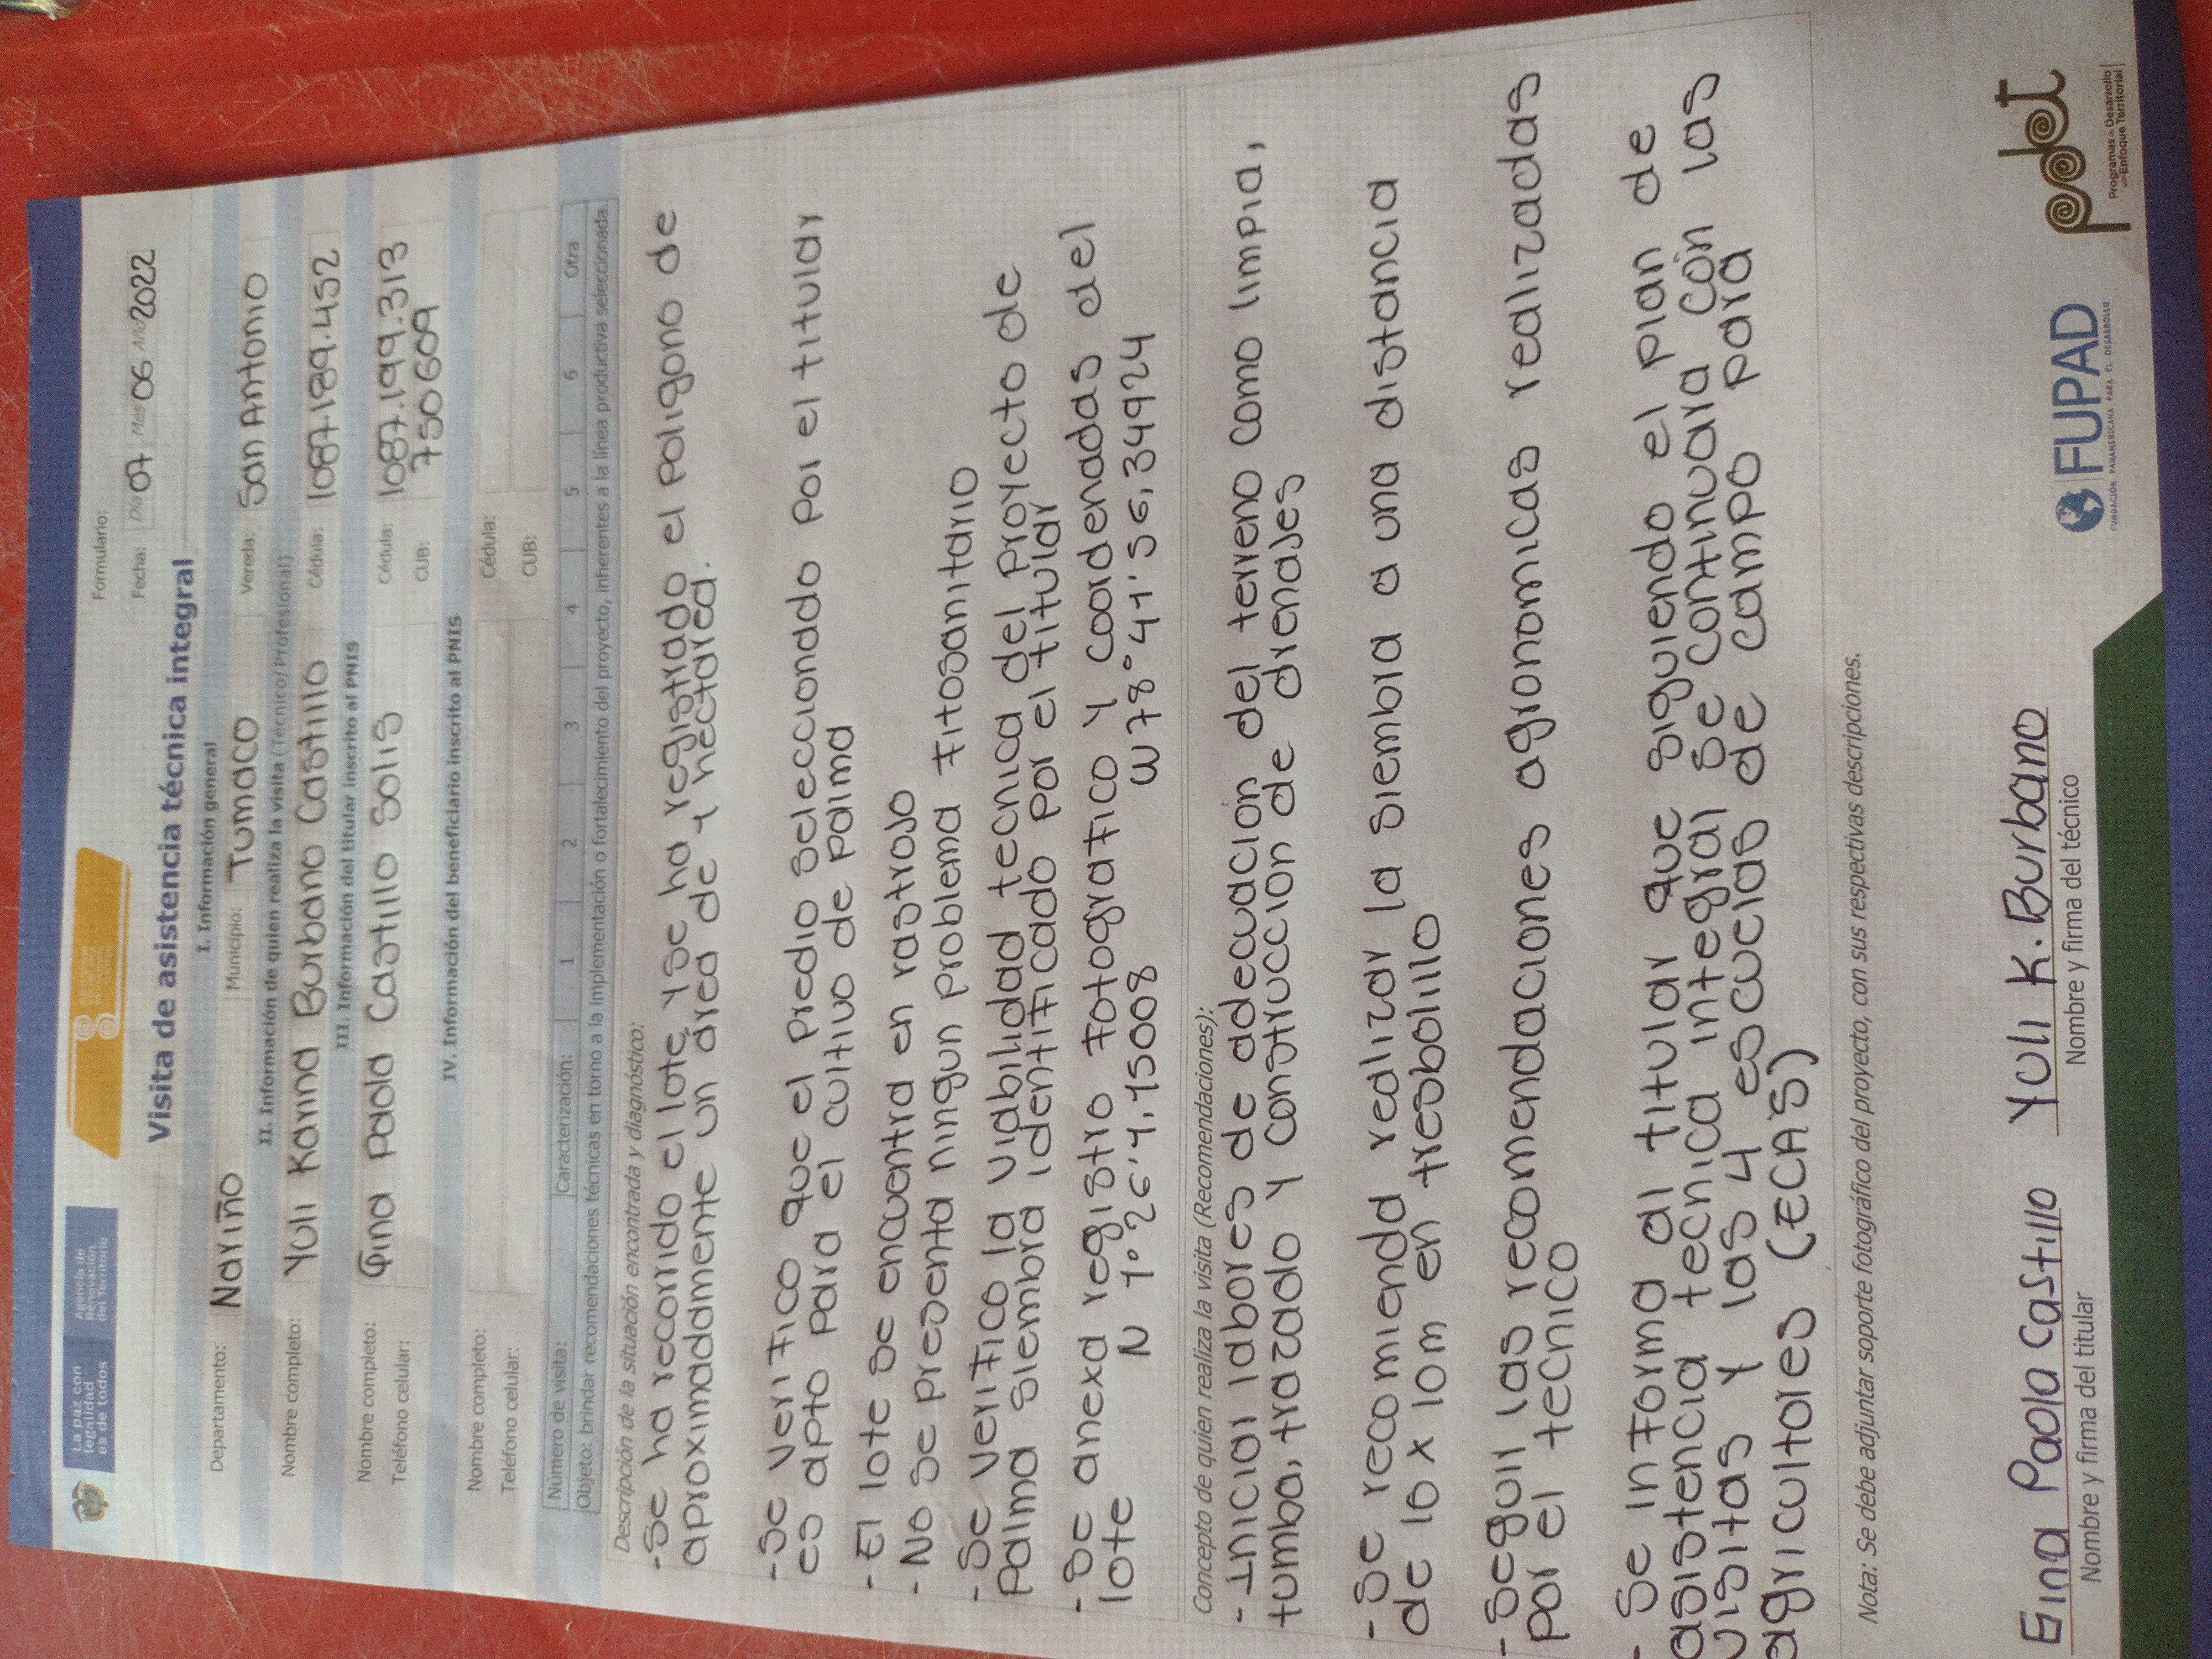 La paz con
legalidad
es de todos
Agencia de
Renovación
del Territorio
Formulario:
Fecha: Día 07 Mes 06 Año 2022
Visita de asistencia técnica integral
I. Información general
Departamento: Nariño Municipio: Tumaco Vereda: San Antonio
II. Información de quien realiza la visita (Técnico/Profesional)
Nombre completo: Yuli Karina Burbano Castillo Cédula: 1087.189.452
III. Información del titular inscrito al PNIS
Nombre completo: Gina Paola Castillo Solis Cédula: 1087.199.313
Teléfono celular: CUB: 750609
IV. Información del beneficiario inscrito al PNIS
Nombre completo: Cédula:
Teléfono celular: CUB:
Número de visita: Caracterización: 1 2 3 4 5 6 Otra
Objeto: brindar recomendaciones técnicas en torno a la implementación o fortalecimiento del proyecto, inherentes a la línea productiva seleccionada.
Descripción de la situación encontrada y diagnóstico:
- Se ha recorrido el lote, y se ha registrado el poligono de
aproximadamente un area de 1 hectarea.
- Se verifico que el predio seleccionado por el titular
es apto para el cultivo de palma
- El lote se encuentra en rastrojo
- No se presenta ningun problema fitosanitario
- Se verifico la viabilidad tecnica del proyecto de
Palma siembra identificado por el titular
- Se anexa registro fotografico y coordenadas del
lote N 1°26'1,15008 W78°41'56,34924
Concepto de quien realiza la visita (Recomendaciones):
- Iniciar labores de adecuación del terreno como limpia,
tumba, trazado y construccion de drenajes
- Se recomienda realizar la siembra a una distancia
de 10 x 10m en tresbolillo
- Seguir las recomendaciones agronomicas realizadas
por el tecnico
- Se informa al titular que siguiendo el plan de
asistencia tecnica integral se continuara con las
visitas y las 4 escuelas de campo para
agricultores (ECAS)
Nota: Se debe adjuntar soporte fotográfico del proyecto, con sus respectivas descripciones.
Gina Paola Castillo Yuli K. Burbano
Nombre y firma del titular Nombre y firma del técnico
FUPAD
FUNDACIÓN PANAMERICANA PARA EL DESARROLLO
pdet
Programas de Desarrollo
con Enfoque Territorial